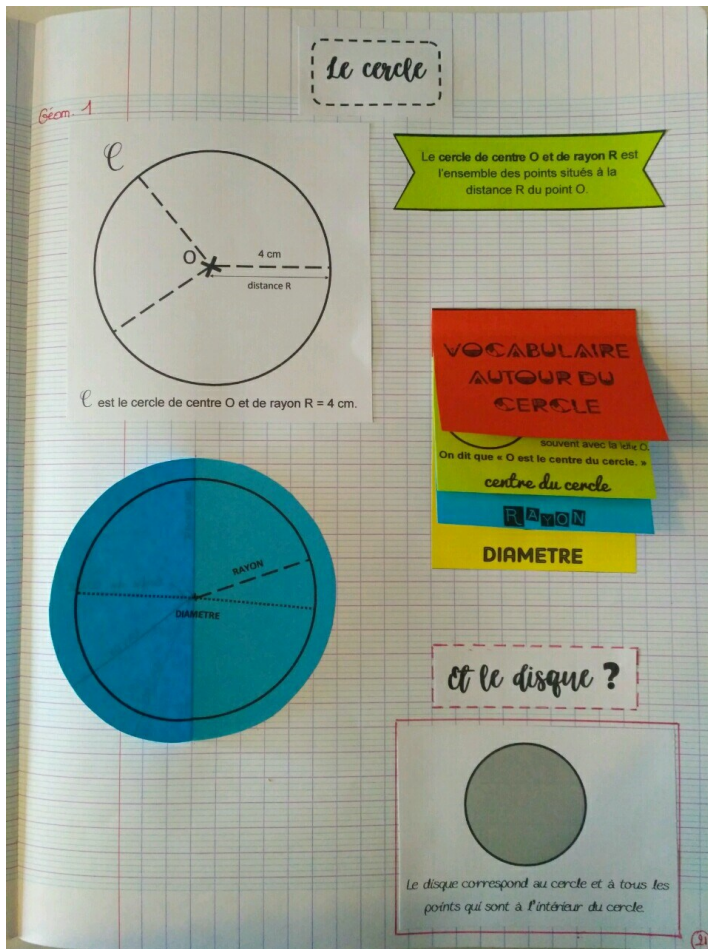 Le cercle
Géom. 1
C
O
4 cm
distance R
C est le cercle de centre O et de rayon R = 4 cm.
Le cercle de centre O et de rayon R est
l'ensemble des points situés à la
distance R du point O.
VOCABULAIRE
AUTOUR DU
CERCLE
souvent avec la lettre O.
On dit que « O est le centre du cercle. »
centre du cercle
RAYON
DIAMETRE
RAYON
DIAMETRE
Et le disque ?
Le disque correspond au cercle et à tous les
points qui sont à l'intérieur du cercle.